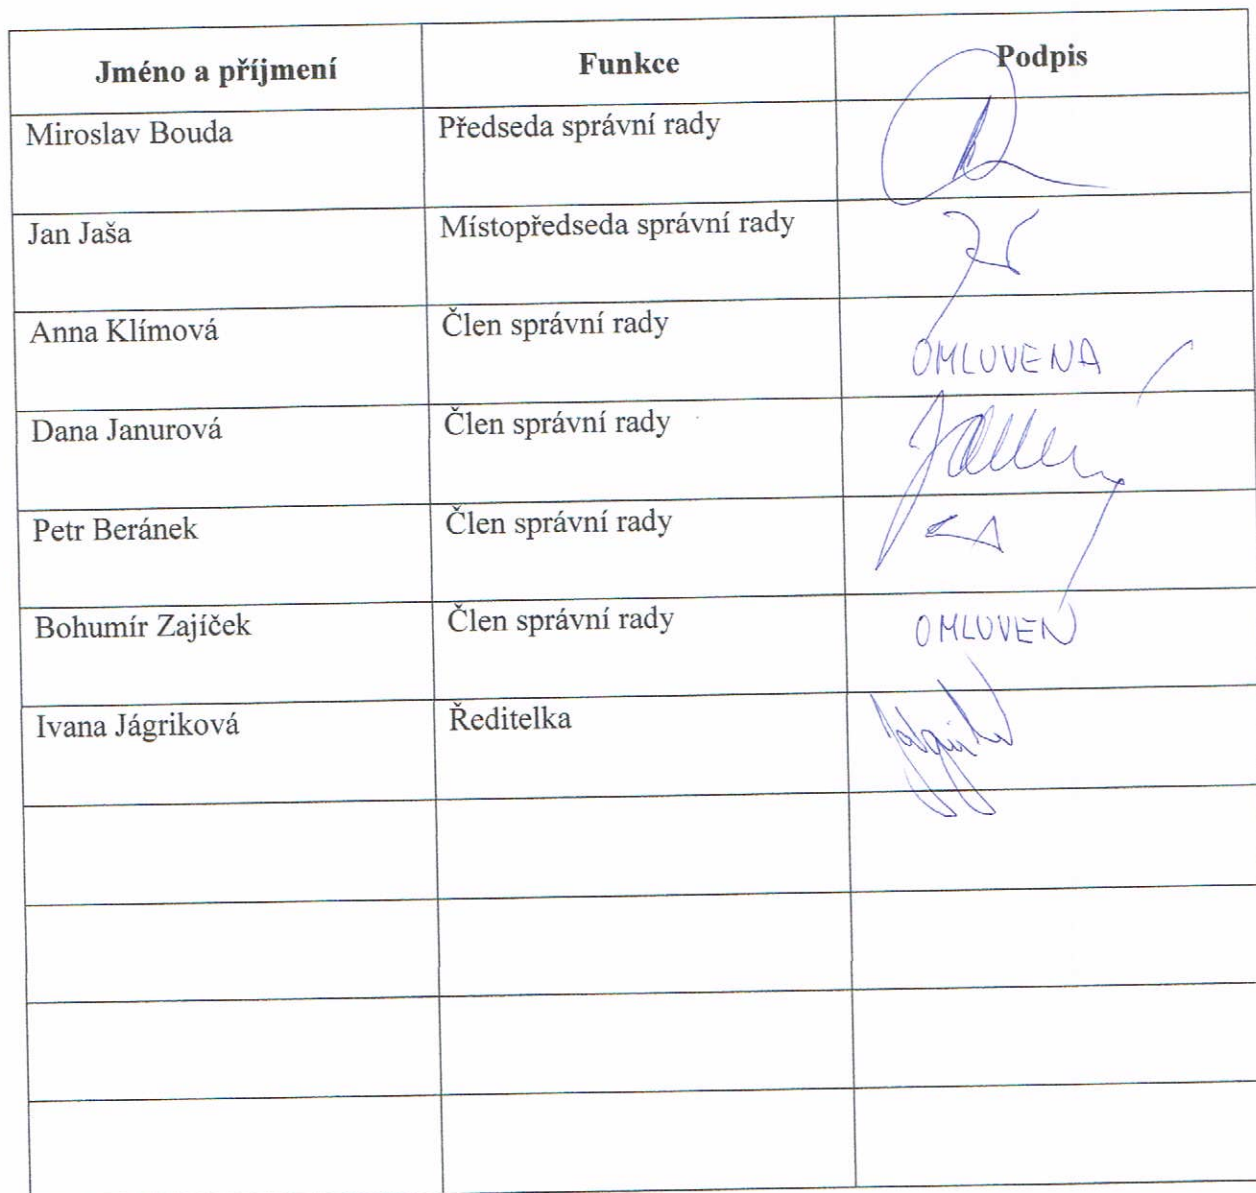 Jméno a příjmení Funkce Podpis
Miroslav Bouda Předseda správní rady
Jan Jaša Místopředseda správní rady
Anna Klímová Člen správní rady OMLUVENA
Dana Janurová Člen správní rady
Petr Beránek Člen správní rady
Bohumír Zajíček Člen správní rady OMLUVEN
Ivana Jágriková Ředitelka